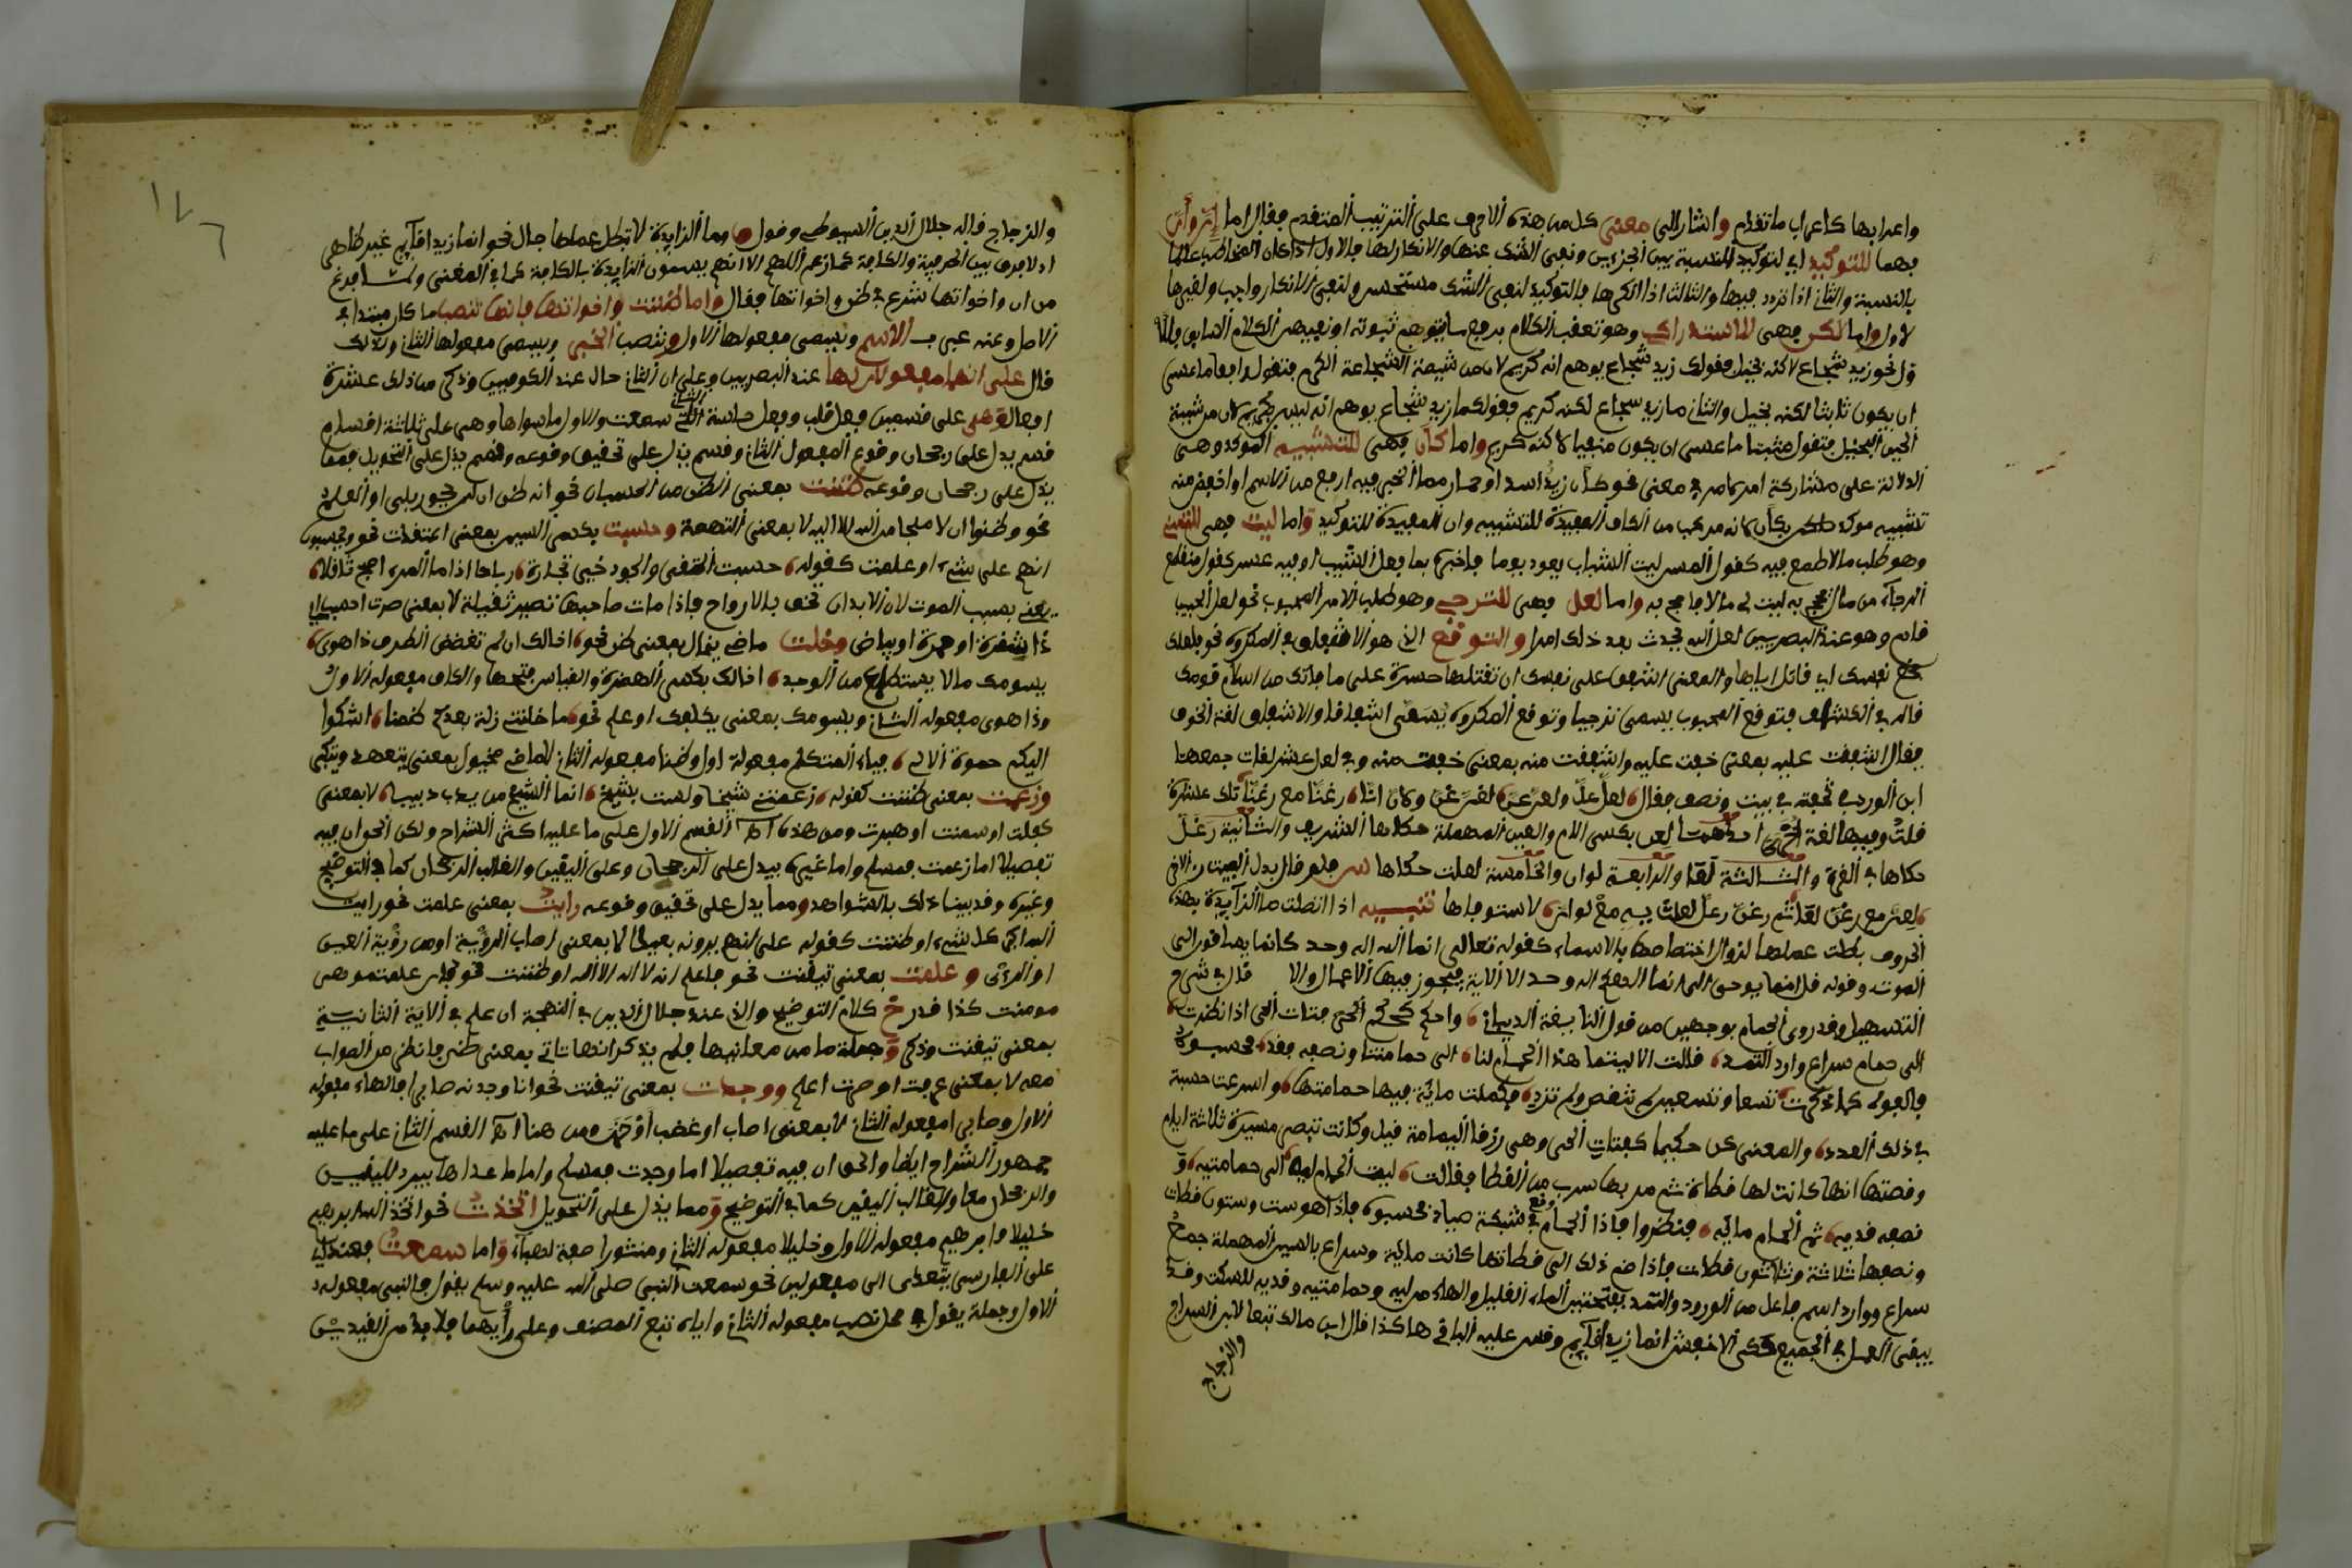 واعرابها كاعراب ما تقدم واشار الى معنى كل من هذه الاحرف على الترتيب المتقدم فقال اما إن وأن
فهما للتوكيد اي لتوكيد النسبة بين الجزءين ونفي الشك عنها والانكار لها فالاول اذا كان المخاطب عالما
بالنسبة والثاني اذا تردد فيها والثالث اذا انكرها فالتوكيد لنفي الشك مستحسن ولنفي الانكار واجب ولغيرهما
لا ولا واما لكن فهي للاستدراك وهو تعقب الكلام برفع ما يتوهم ثبوته او نفيه من الكلام السابق
نحو زيد شجاع لاكنه بخيل فقولك زيد شجاع يوهم انه كريم لان من شيمة الشجاعة الكرم فتقول رافعا ما عسى
ان يكون ثابتا لكنه بخيل والثاني ما زيد شجاع لكنه كريم فقولك ما زيد شجاع يوهم انه ليس بكريم لان من شيمة
الجبن البخل فتقول مثبتا ما عسى ان يكون منفيا لاكنه كريم واما كأن فهي للتشبيه المؤكد وهي
الدلالة على مشاركة امر لامر في معنى نحو كأن زيدا اسد او حمار مما الخبر فيه ارفع من الاسم او اخفض منه
تشبيه موكد بكأن لانه مركب من الكاف المفيدة للتشبيه وان المفيدة للتوكيد واما ليت فهي للتمني
وهو طلب ما لا طمع فيه كقول المسن ليت الشباب يعود يوما فاخبره بما فعل المشيب او فيه عسر كقول منقطع
الرجاء من مال يحج به ليت لي مالا فاحج به واما لعل فهي للترجي وهو طلب الامر المحبوب نحو لعل الحبيب
قادم وهو عند البصريين لعل الله يحدث بعد ذلك امرا والتوقع الذي هو الاشفاق في المكروه نحو فلعلك
باخع نفسك اي قاتل اياها والمعنى اشفق على نفسك ان تقتلها حسرة على ما فاتك من اسلام قومك
قاله في الكشاف فتوقع المحبوب يسمى ترجيا وتوقع المكروه يسمى اشفاقا والاشفاق لغة الخوف
يقال اشفقت عليه بمعنى خفت عليه واشفقت منه بمعنى خفت منه وفي لعل عشر لغات جمعها
ابن الوردي في تحفته في بيت ونصف فقال لعل علّ ولعنّ عنّ لغنّ غنّ ولأنّ أنّ رعنّا مع رغنّا تلك عشرة
قلت وفيها لغة اخرى احداهما لعل بكسر اللام والعين المهملة حكاها الشريف والثانية رعلّ
حكاها في الغرة والثالثة لعا والرابعة لوان والخامسة لعلت حكاها س فلو قال بدل البيت الاخر
الحروف بطلت عملها لزوال اختصاصها بالاسماء كقوله تعالى انما الله اله واحد كانما يساقون الى
الموت وقوله قل انما يوحى الي انما الهكم اله واحد الآية فيجوز فيها الاعمال والا قال في شرح
التسهيل وقد روي الحمام بوجهين من قول النابغة الذبياني واحكم كحكم فتاة الحي اذا نظرت
الى حمام سراع وارد الثمد قالت الا ليتما هذا الحمام لنا الى حمامتنا ونصفه فقد فحسبوه
فالفوه كما ذكرت تسعا وتسعين لم تنقص ولم تزد فكملت مائة فيها حمامتها واسرعت حسبة
في ذلك العدد والمعنى كن حكيما كفتاة الحي وهي زرقا اليمامة قيل وكانت تبصر مسيرة ثلاثة ايام
وقصتها انها كانت لها قطاة ثم مر بها سرب من القطا فقالت ليت الحمام ليه الى حمامتيه و
نصفه قديه ثم الحمام مايه فنظروا فاذا الحمام وقع في شبكة صياد فحسبوه فاذا هو ست وستون قطات
ونصفها ثلاثة وثلاثون قطات فاذا ضم ذلك الى قطاتها كانت ماية وسراع بالسين المهملة جمع
سراع ووارد اسم فاعل من الورود والثمد بفتحتين الماء القليل والهاء من ليه وحمامتيه وقديه للسكت وقد
يبقى العمل في الجميع حكى الاخفش انما زيدا قايم وقس عليه الباقي هاكذا قال ابن مالك تبعا لابن السراج
والزجاج
١٧٦
والزجاج قاله جلال الدين السيوطي وقول ما الزايدة لا تبطل عملها جال نحو انما زيدا قايم غير ظاهر
اذ لا فرق بين الحرفية والكافة كما زعم اللهم الا انهم يسمون الزايدة بالكافة كما في المغني ولما فرغ
من ان واخواتها شرع في ظن واخواتها فقال واما ظننت واخواتها فانها تنصب ما كان مبتدا في
الاصل وعنه عبر بـ الاسم ويسمى مفعولها الاول وتنصب الخبر ويسمى مفعولها الثاني ولذلك
قال على انهما مفعولان لها عند البصريين وعلى ان الثاني حال عند الكوفيين وذكر من ذلك عشرة
افعال وهي على قسمين فعل قلب وفعل حاسة الثاني سمعت والاول ما سواها وهي على ثلاثة اقسام
قسم يدل على رجحان وقوع المفعول الثاني وقسم يدل على تحقيق وقوعه وقسم يدل على التحويل فمما
يدل على رجحان وقوعه ظننت بمعنى الظن من الحسبان نحو انه ظن ان لن يحور بلى او العلم
نحو وظنوا ان لا ملجا من الله الا اليه لا بمعنى التهمة وحسبت بكسر السين بمعنى اعتقدت نحو ويحسبون
انهم على شيء او علمت كقوله حسبت التقى والجود خير تجارة رباحا اذا ما المرء اصبح ثاقلا
يعني بسبب الموت لان الابدان تخف بالارواح فاذا مات صاحبها تصير ثقيلة لا بمعنى صرت احسب اي
ذا شقرة او حمرة او بياض وخلت ماضي يخال بمعنى ظن نحو اخالك ان لم تغضض الطرف ذا هوى
يسومك ما لا يستطاع من الوجد اخالك بكسر الهمزة والقياس فتحها والكاف مفعوله الاول
وذا هوى مفعوله الثاني ويسومك بمعنى يكلفك او علم نحو ما خلتني زلت بعدكم ضمنا اشكوا
اليكم حموة الالم فياء المتكلم مفعوله اول وضمنا مفعوله الثاني لا ماضي يخيل بمعنى يتعهد ويتكبر
وزعمت بمعنى ظننت كقوله زعمتني شيخا ولست بشيخ انما الشيخ من يدب دبيبا لا بمعنى
كفلت او سمنت او هبرت ومن هذه القسم الاول على ما عليه اكثر الشراح ولكن الحق ان فيه
تفصيلا اما زعمت فمسلم واما غيره فيدل على الرجحان وعلى اليقين والغالب الرجحان كما في التوضيح
وغيره وقد بينا ذلك بالشواهد ومما يدل على تحقيق وقوعه رايت بمعنى علمت نحو رايت
الله اكبر كل شيء او ظننت كقوله على انهم يرونه بعيدا لا بمعنى اصاب الرؤية او من رؤية العين
او الرأي وعلمت بمعنى تيقنت نحو فاعلم انه لا اله الا الله او ظننت نحو فان علمتموهن
مومنات كذا قدرح كلام التوضيح والذي عند جلال الدين في البهجة ان علم في الاية الثانية
بمعنى تيقنت وذكر جملة ما من معانيها فلم يذكر انها تاتي بمعنى ظن فانظر من الصواب
معه لا بمعنى عرفت او صرت اعلم ووجدت بمعنى تيقنت نحو انا وجدنه صابرا فالهاء مفعوله
الاول وصابرا مفعوله الثاني لا بمعنى اصاب او غضب او حزن ومن هنا القسم الثاني على ما عليه
جمهور الشراح ايضا والحق ان فيه تفصيلا اما وجدت فمسلم واما ما عداها فيرد لليقين
والرجحان معا والغالب اليقين كما في التوضيح ومما يدل على التحويل اتخذت نحو اتخذ الله ابرهيم
خليلا فابرهيم مفعوله الاول وخليلا مفعوله الثاني ومنثورا صفة لهباء واما سمعت فعند ابي
على الفارسي يتعدى الى مفعولين نحو سمعت النبي صلى الله عليه وسلم يقول فالنبي مفعوله
الاول وجملة يقول في محل نصب مفعوله الثاني واياه تبع المصنف وعلى رأيهما فلا بد من القيدين